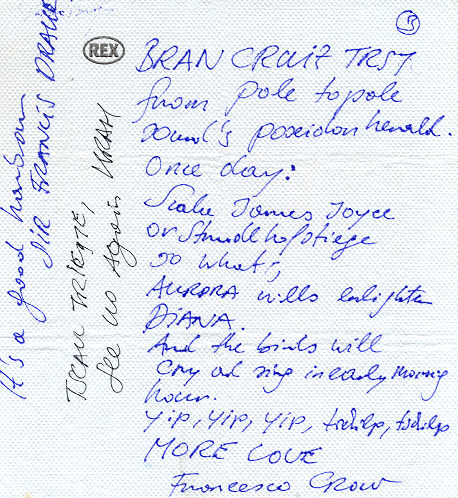 REX
BRAN CRUIZ TRST
from pole to pole
sound's poseidon herald.
Once day:
Scale James Joyce
or Strudlhofstiege
so what's,
AURORA wills enlighten
DIANA.
And the birds will
Cry and sing in early morning
hour.
yip, yip, yip, tschilp, tschilp
MORE LOVE
Francesco Crow
It's a good harbour
SIR FRANCIS DRAKE
TRIESTE,
See us again